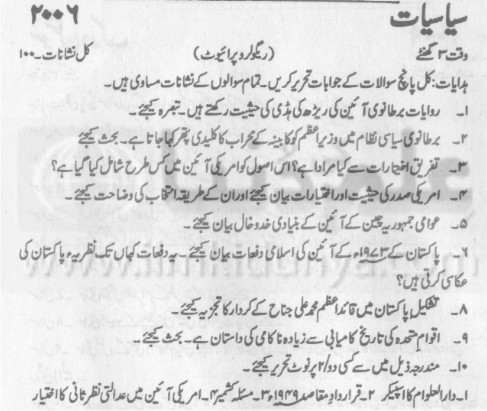 سیاسیات ۲۰۰۶
وقت ۳ گھنٹے (ریگولر و پرائیوٹ) کل نشانات۔۱۰۰
ہدایات: کل پانچ سوالات کے جوابات تحریر کریں۔ تمام سوالوں کے نشانات مساوی ہیں۔
۱۔ روایات برطانوی آئین کی ریڑھ کی ہڈی کی حیثیت رکھتے ہیں۔ تبصرہ کیجئے۔
۲۔ برطانوی سیاسی نظام میں وزیر اعظم کو کابینہ کے محراب کا کلیدی پتھر کہا جاتا ہے۔ بحث کیجئے
۳۔ تفریق اختیارات سے کیا مراد ہے؟ اس اصول کو امریکی آئین میں کس طرح شامل کیا گیا ہے؟
۴۔ امریکی صدر کی حیثیت اور اختیارات بیان کیجئے اور ان کے طریقہ انتخاب کی وضاحت کیجئے۔
۵۔ عوامی جمہوریہ چین کے آئین کے بنیادی خدوخال بیان کیجئے۔
۶۔ پاکستان کے ۱۹۷۳ء کے آئین کی اسلامی دفعات بیان کیجئے۔ یہ دفعات کہاں تک نظریہ پاکستان کی
عکاسی کرتی ہیں؟
۸۔ تشکیل پاکستان میں قائد اعظم محمد علی جناح کے کردار کا تجزیہ کیجئے۔
۹۔ اقوام متحدہ کی تاریخ کامیابی سے زیادہ ناکامی کی داستان ہے۔ بحث کیجئے۔
۱۰۔ مندرجہ ذیل میں سے کسی دو/۲ پر نوٹ تحریر کیجئے۔
۱۔دارالعلوم کا اسپیکر ۲۔ قرارداد مقاصد ۱۹۴۹ء ۳۔ مسئلہ کشمیر ۴۔ امریکی آئین میں عدالتی نظر ثانی کا اختیار
www.ilmkidunya.com